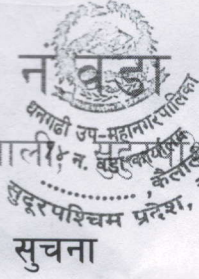 नं वडा
धनगढी उप-महानगरपालिका
१४ न. वडा कार्यालय
कैलाली
सुदूरपश्चिम प्रदेश,
सुचना